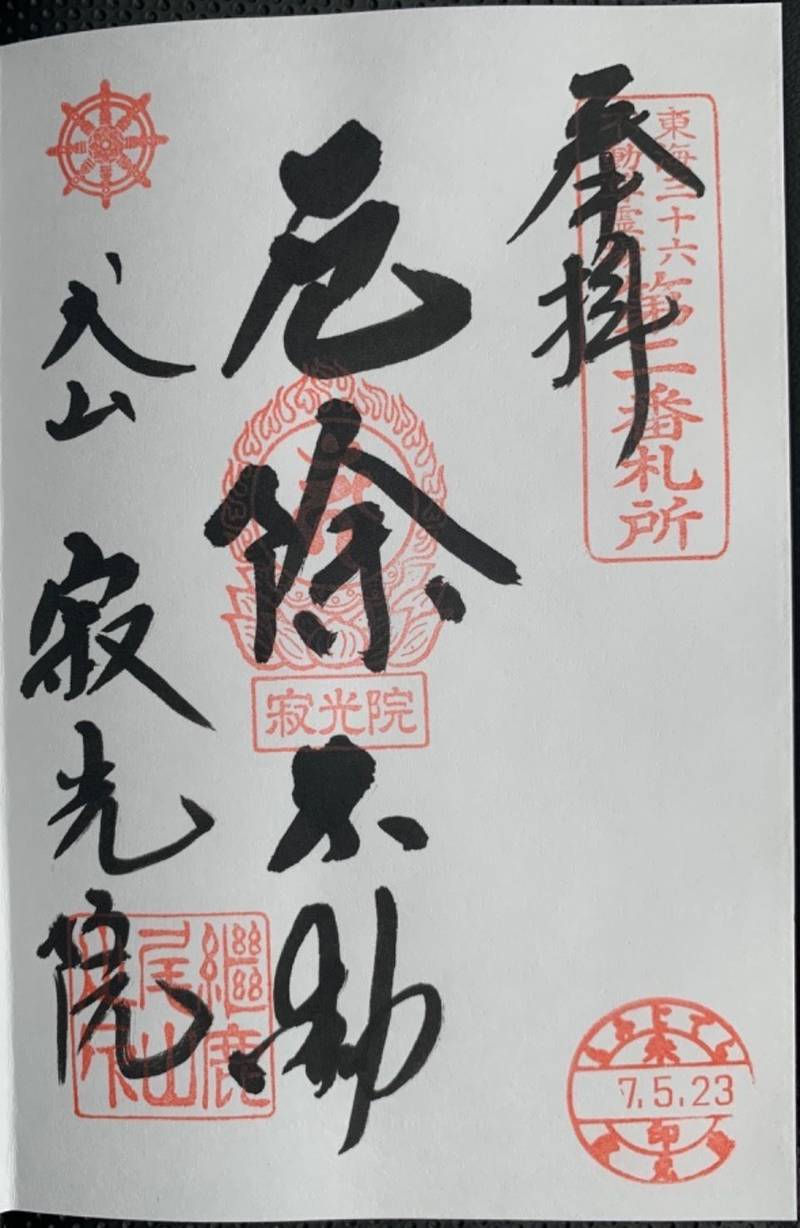 奉拝
東海三十六
不動尊霊場
第二番札所
厄除不動
寂光院
犬山 寂光院
継鹿
尾山
7.5.23